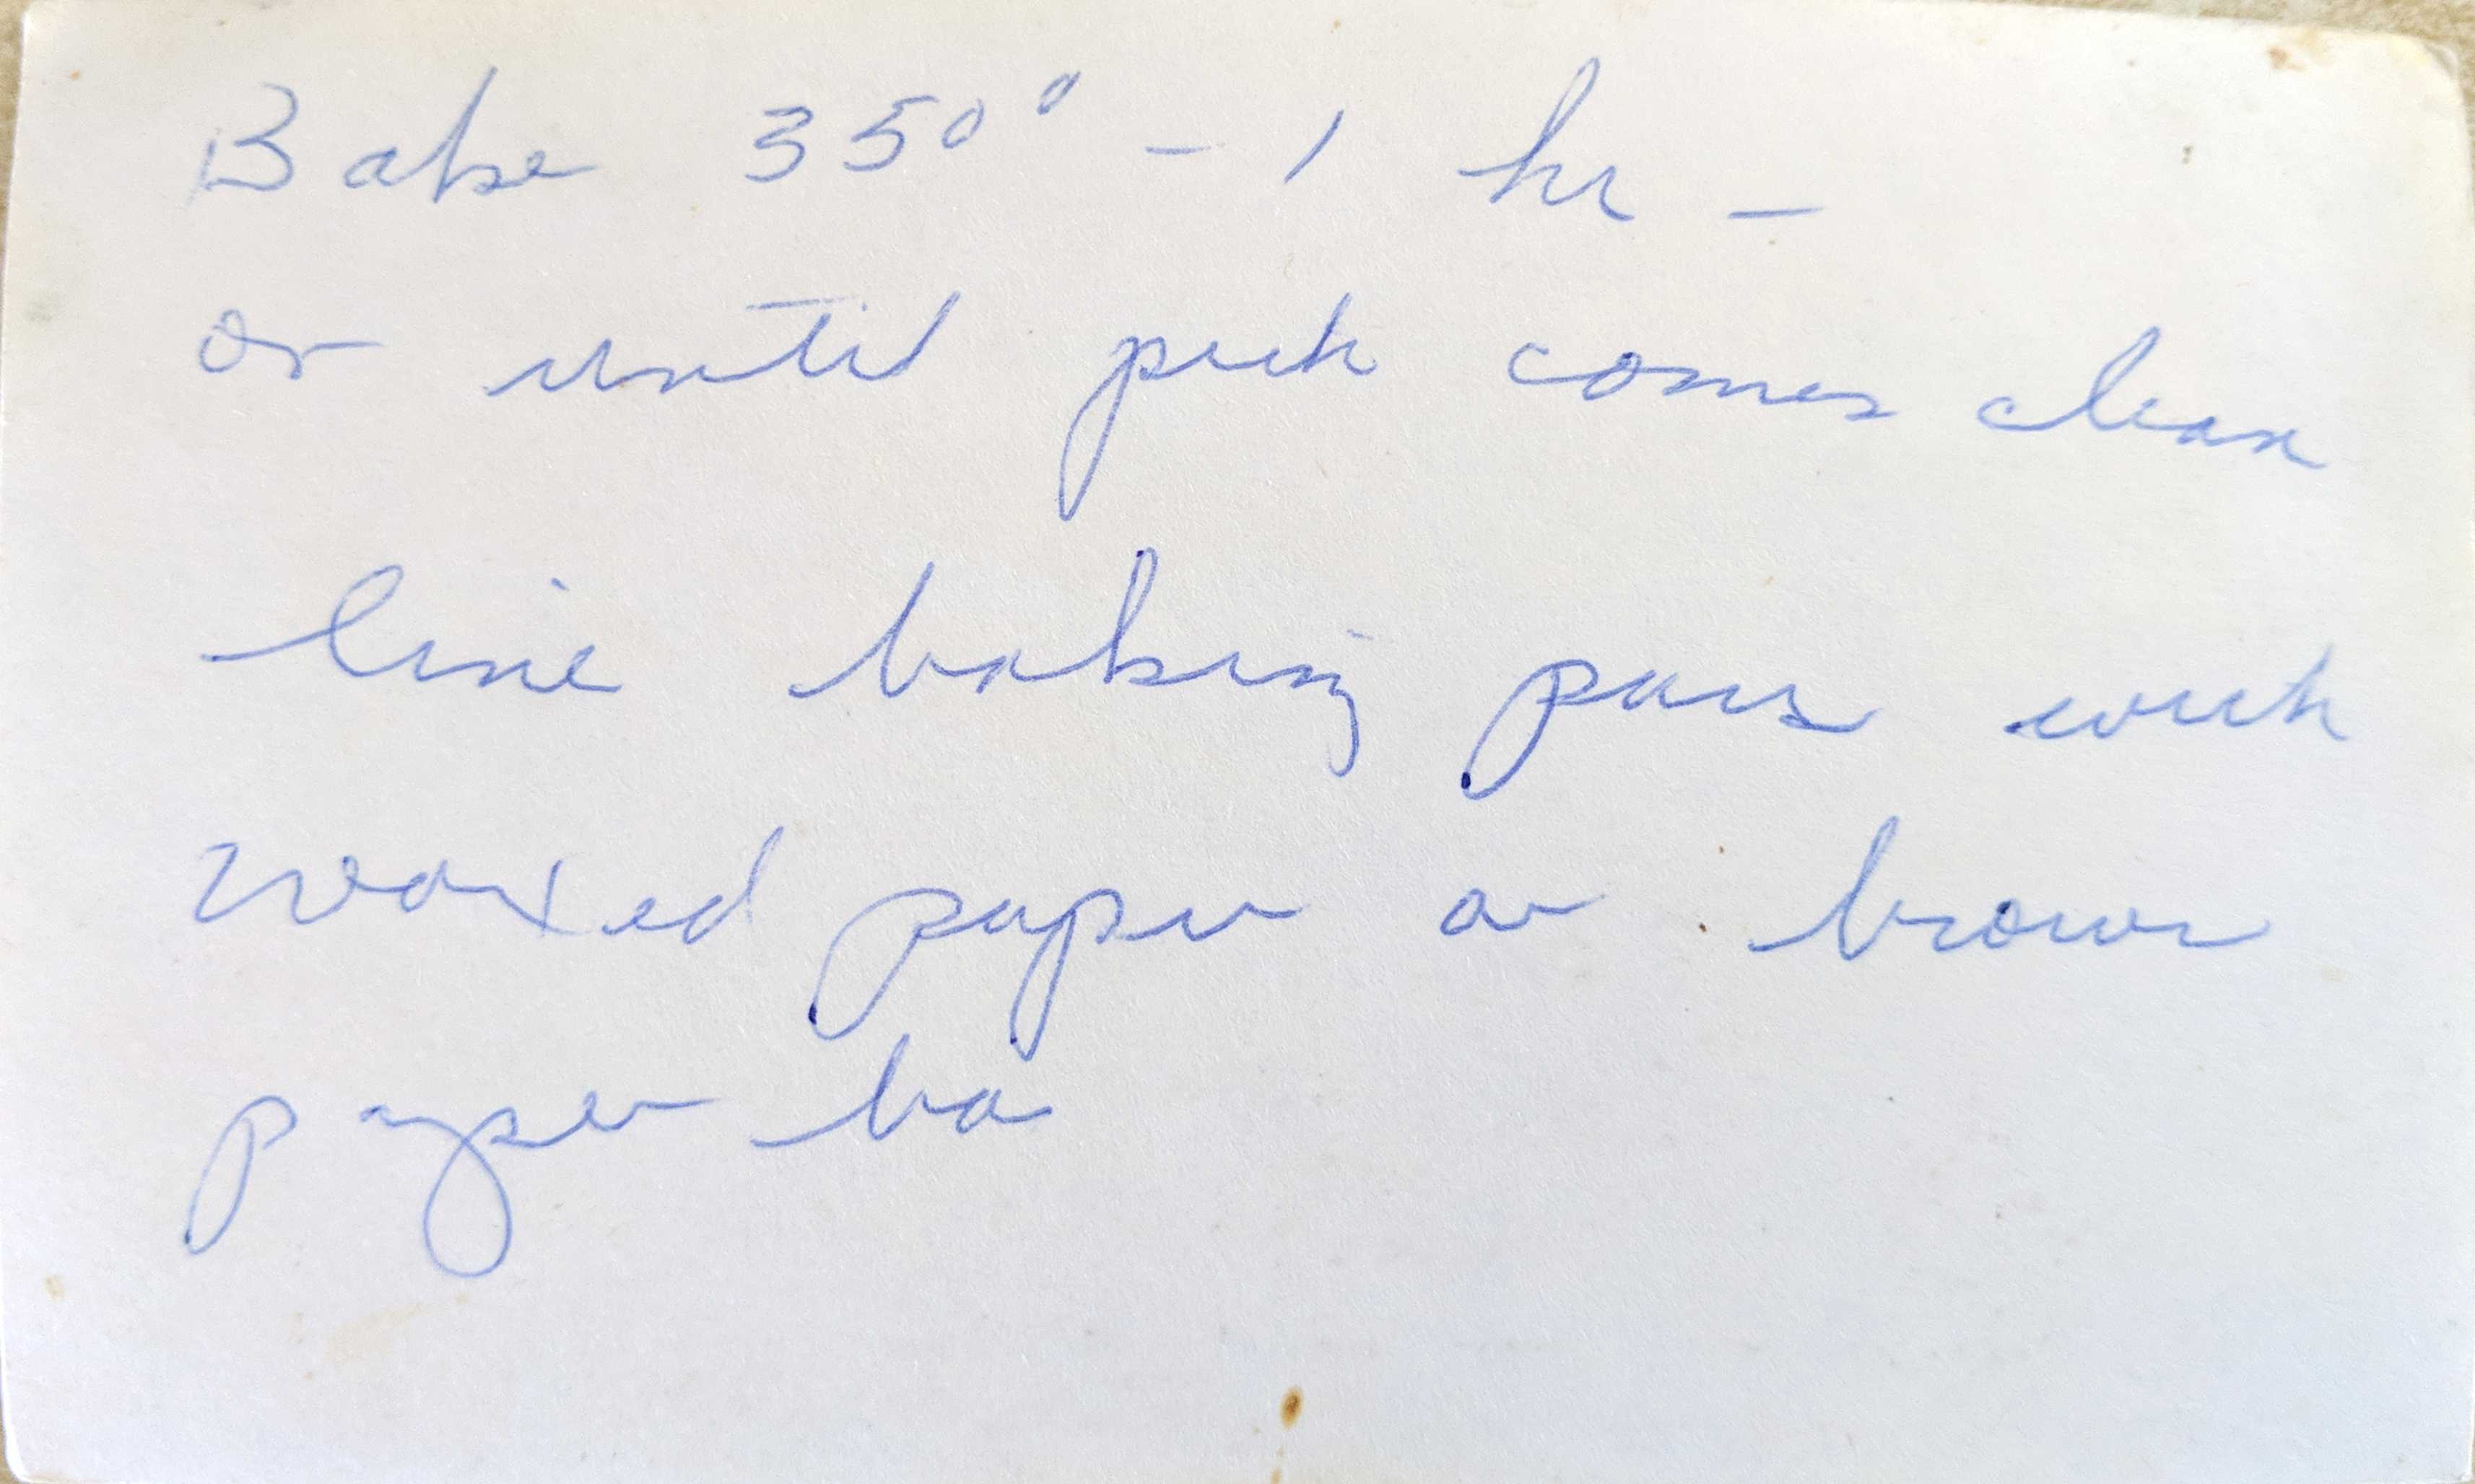 Bake 350° - 1 hr -
or until pick comes clean
line baking pans with
waxed paper or brown
paper ba